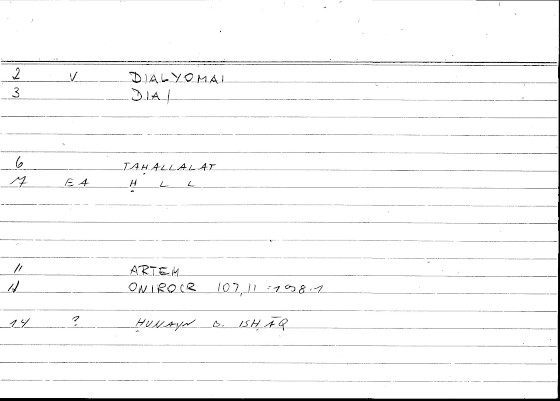 2 V DIALYOMAI
3 DIA/
6 TAḤALLALAT
7 EA Ḥ L L
11 ARTEM
ONIROCR 107,11 = 198.1
14 ? ḤUNAYN B. ISḤĀQ